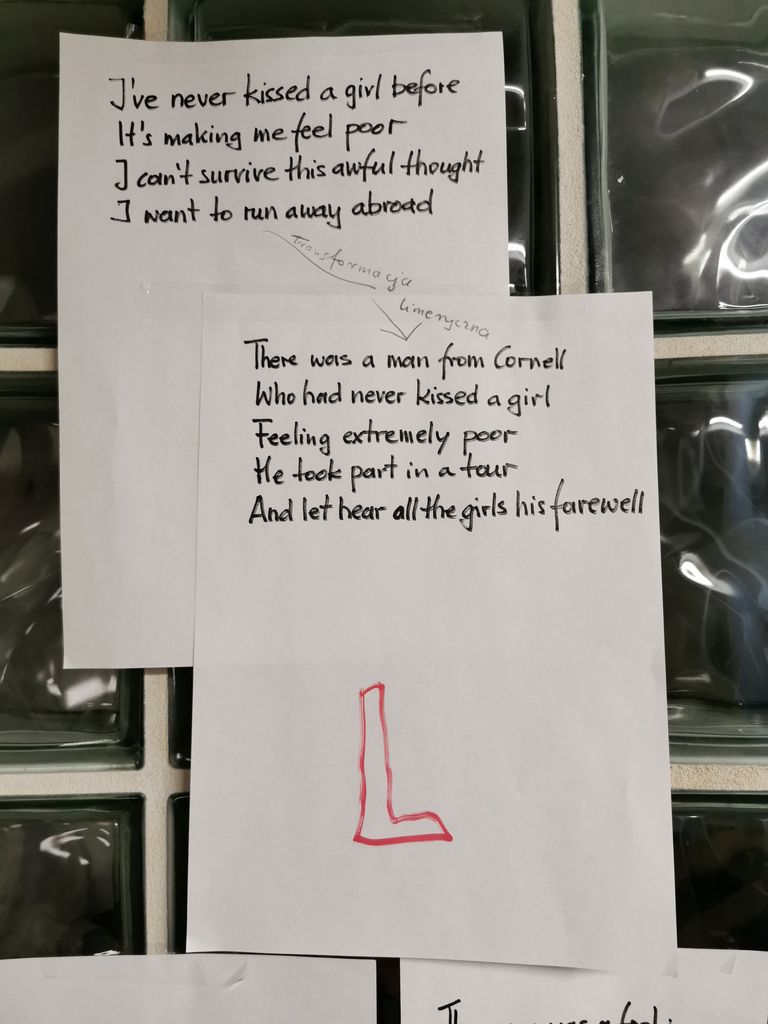 I've never kissed a girl before
It's making me feel poor
I can't survive this awful thought
I want to run away abroad
Transformacja
limeryczna
There was a man from Cornell
Who had never kissed a girl
Feeling extremely poor
He took part in a tour
And let hear all the girls his farewell
L